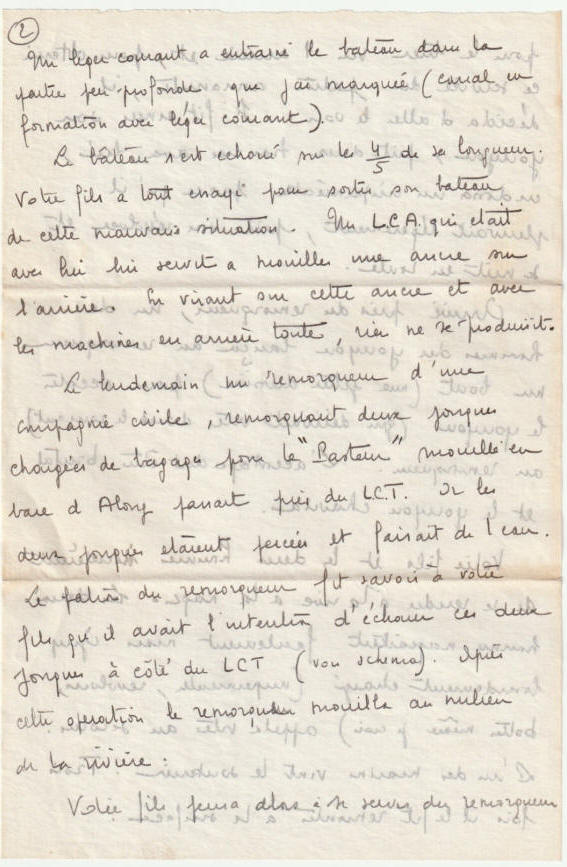 2
Un leger courant a entrainé le bateau dans la
partie peu profonde que j'ai marquée (canal en
formation avec leger courant).
Le bâteau s'est echoué sur les 4/5 de sa longueur.
Votre fils a tout essayé pour sortir son bateau
de cette mauvaise situation. Un L.C.A. qui etait
avec lui lui servit a mouiller une ancre sur
l'arriere. En virant sur cette ancre et avec
les machines en arriere toute, rien ne se produisit.
Le lendemain un remorqueur d'une
compagnie civile, remorquant deux jonques
chargées de bagages pour le "Pasteur" mouillé en
baie d'Along passait près du L.C.T. Or les
deux jonques etaient percées et faisait de l'eau.
Le patron du remorqueur fit savoir à votre
fils qu'il avait l'intention d'échouer ces deux
jonques à côté du LCT (voir schema). Après
cette operation le remorqueur mouilla au milieu
de la rivière :
Votre fils pensa alors à se servir du remorqueur